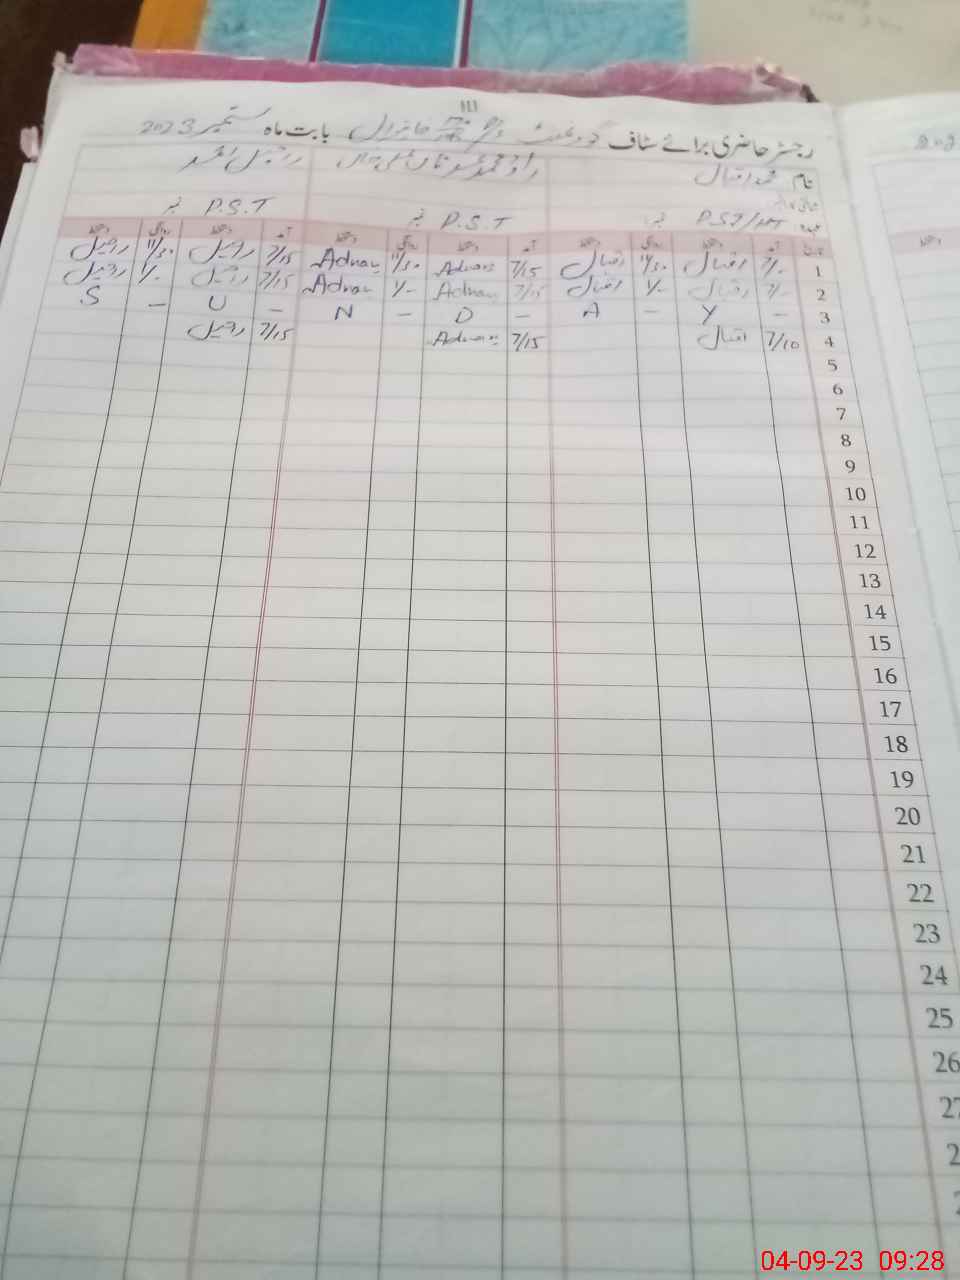 111
رجسٹر حاضری برائے سٹاف گورنمنٹ بابت ماہ ستمبر 2023
نام محمد اقبال
عہدہ P.S.T/HT نمبر P.S.T نمبر P.S.T نمبر
تاریخ آمد دستخط روانگی دستخط آمد دستخط روانگی دستخط آمد دستخط روانگی دستخط
1 7/- اقبال 11/30 اقبال 7/15 Adnan 11/30 Adnan 7/15 راحیل 11/30 راحیل
2 7/- اقبال 1/- اقبال 7/15 Adnan 1/- Adnan 7/15 راحیل 1/- راحیل
3 — Y — A — D — N — U — S
4 7/10 اقبال 7/15 Adnan 7/15 راحیل
5
6
7
8
9
10
11
12
13
14
15
16
17
18
19
20
21
22
23
24
25
26
27
04-09-23 09:28